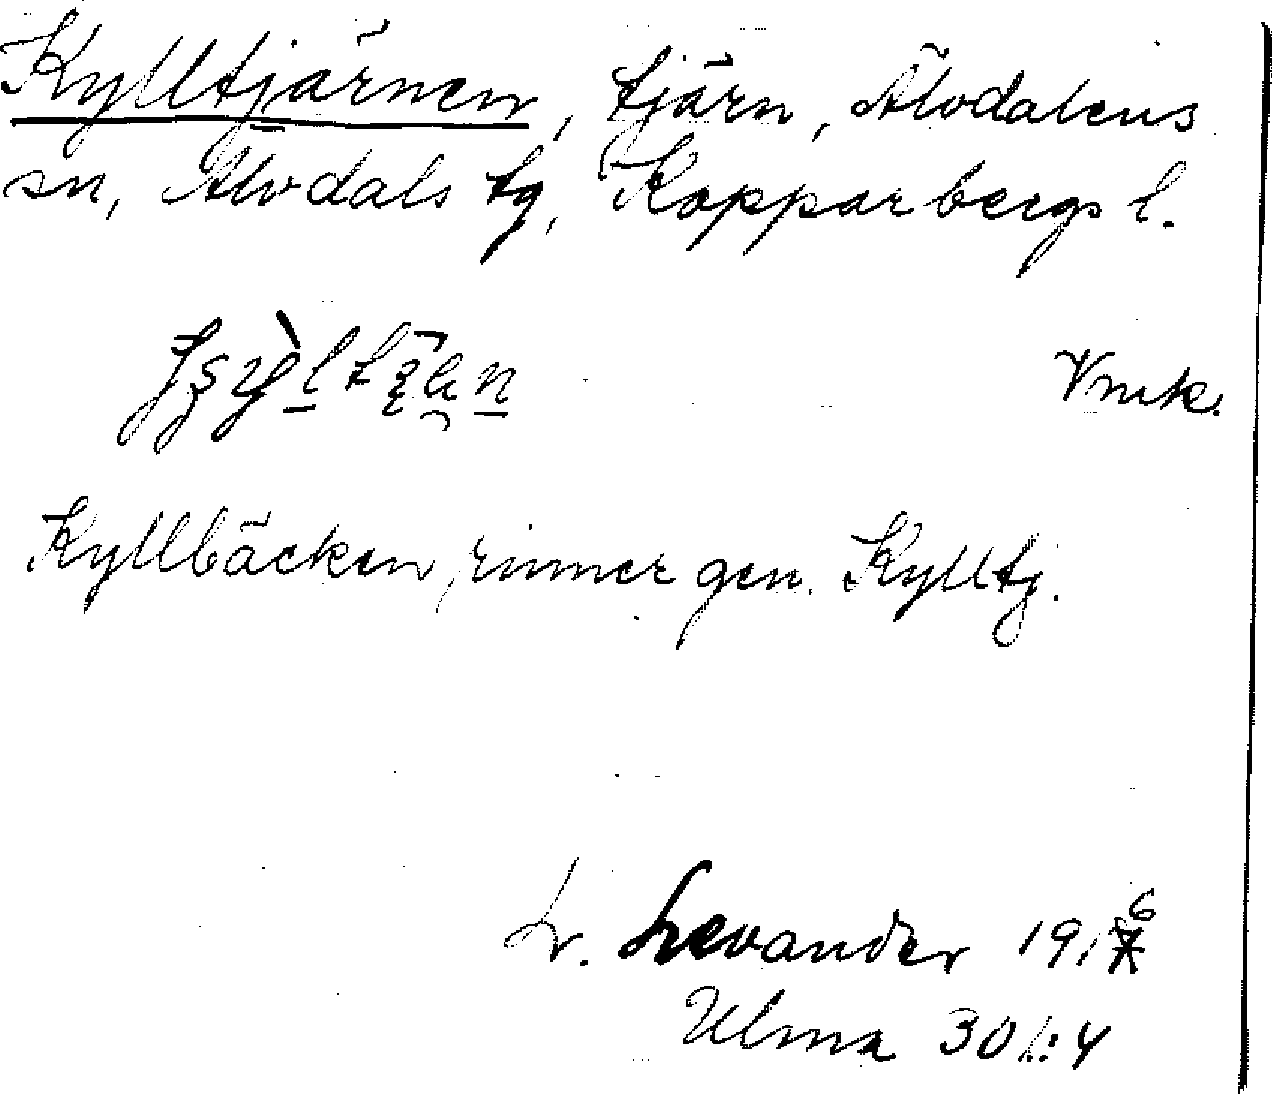 Kylltjärnen, tjärn, Älvdalens
sn, Älvdals tg, Kopparbergs l.
Vmk.
Kyllbäcken rinner gen. Kylltj.
L. Levander 1916
Ulma 301:4